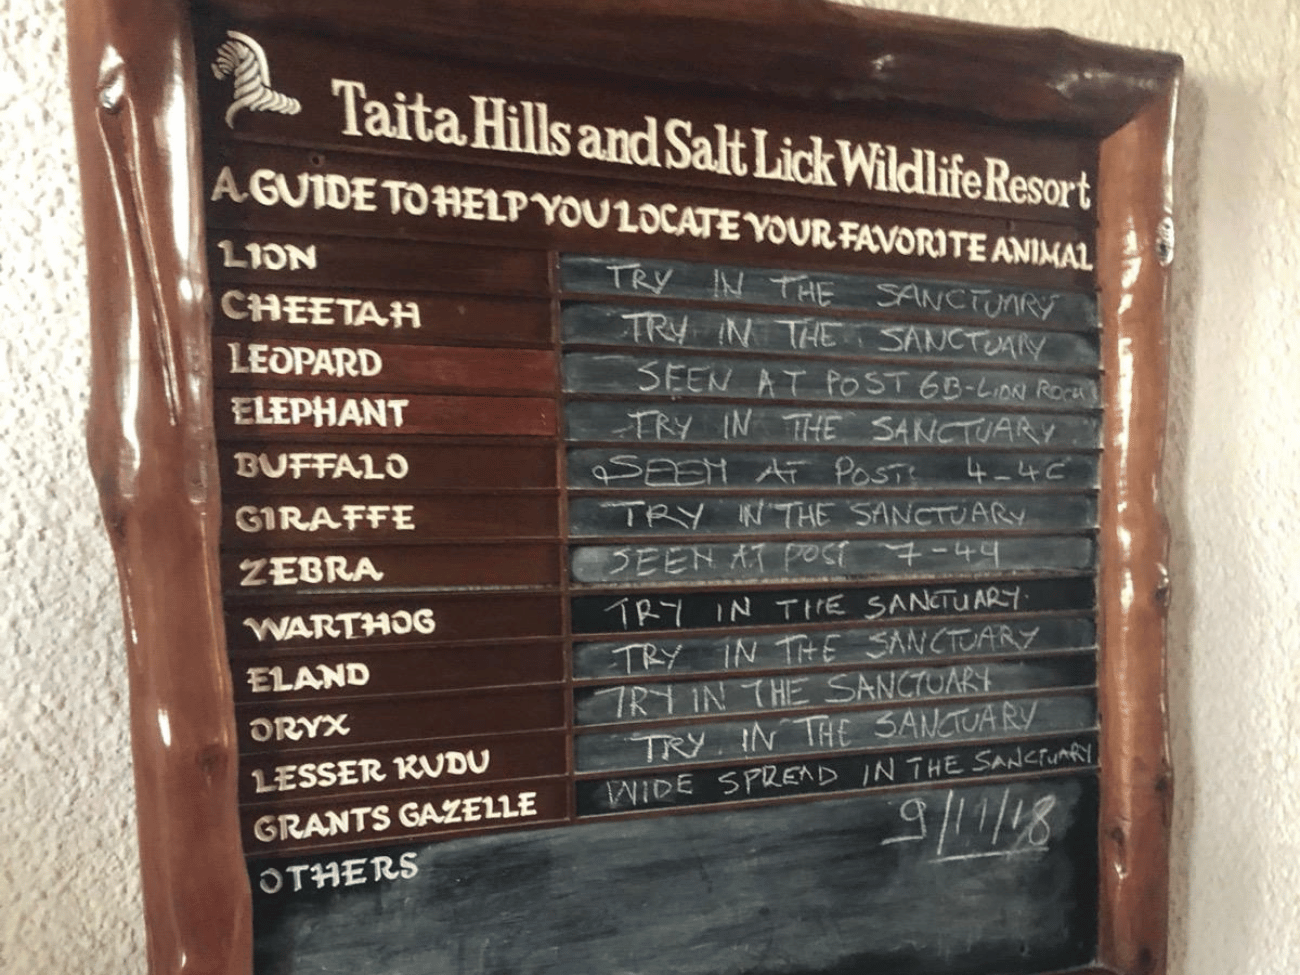 Taita Hills and Salt Lick Wildlife Resort
A GUIDE TO HELP YOU LOCATE YOUR FAVORITE ANIMAL
LION TRY IN THE SANCTUARY
CHEETAH TRY IN THE SANCTUARY
LEOPARD SEEN AT POST 6B-LION ROCK
ELEPHANT TRY IN THE SANCTUARY
BUFFALO SEEN AT POST 4-4C
GIRAFFE TRY IN THE SANCTUARY
ZEBRA SEEN AT POST 7-49
WARTHOG TRY IN THE SANCTUARY
ELAND TRY IN THE SANCTUARY
ORYX TRY IN THE SANCTUARY
LESSER KUDU TRY IN THE SANCTUARY
GRANTS GAZELLE WIDE SPREAD IN THE SANCTUARY
9/11/18
OTHERS